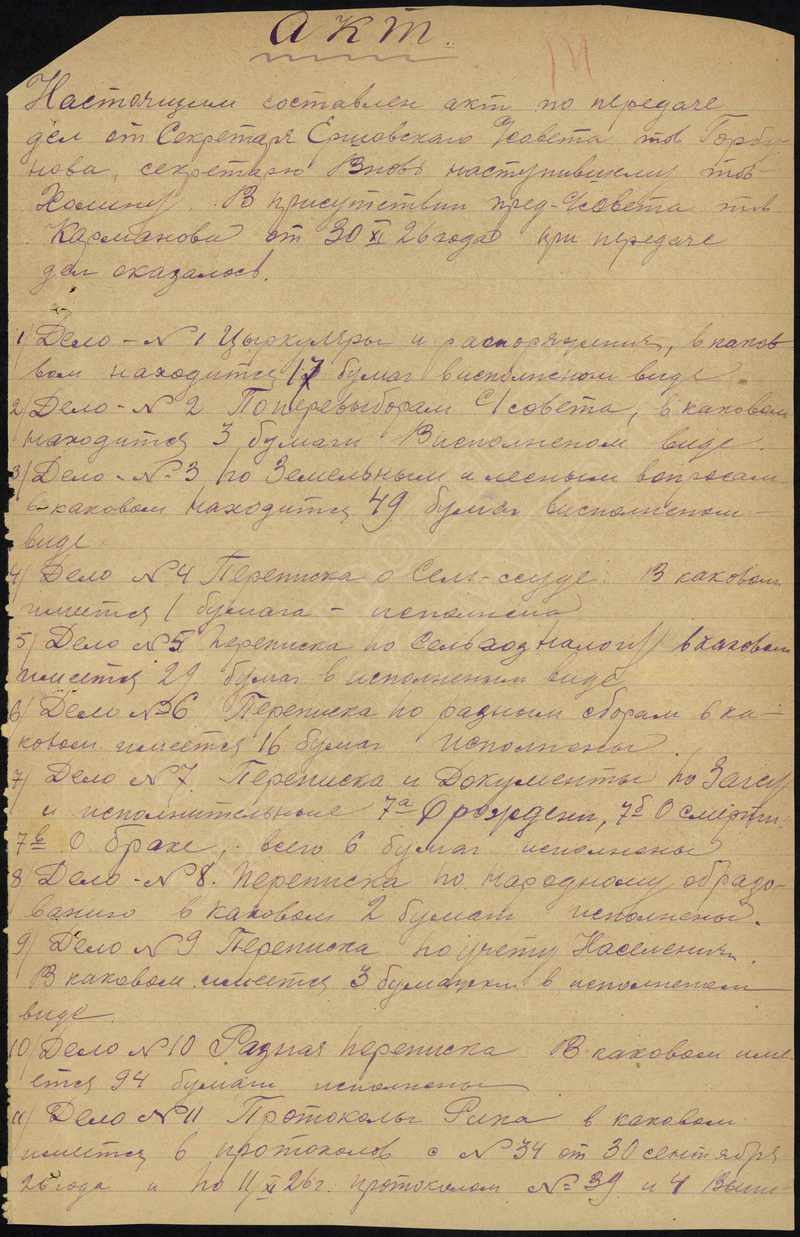 Акт.
Настоящим составлен акт по передаче
дел от Секретаря Ершовского С/совета тов Горбу-
нова, секретарю Вновь наступившему тов-
Холину. В присутствии пред-С/совета тов
Карманова от 30 XI 26 года при передаче
дел оказалось.
1/ Дело - № 1 Цыркуляры и распоряжения, в каков-
вом находится 17 бумаг в исполненом виде
2/ Дело - № 2 По перевыборам С/совета, в каковом
находится 3 бумаги В исполненом виде.
3/ Дело - № 3 по Земельным и лесным вопросам
в каковом находится 49 бумаг в исполненом -
виде
4/ Дело № 4 Переписка о Сем-ссуде. В каковом
имеется 1 бумага - исполнена
5/ Дело № 5 Переписка по Сельхозналогу в каковом
имеется 29 бумаг в исполненым виде
6/ Дело № 6 Переписка по разным сборам в ка-
ковом имеется 16 бумаг исполнены.
7/ Дело № 7. Переписка и Документы по Загсу
и исполнительные 7а О рождени, 7б О смерти.
7в О браке, всего 6 бумаг исполнены
8 Дело - № 8. Переписка по народному образо-
ванию в каковом 2 бумаги исполнены.
9/ Дело № 9 Переписка по учету Населения.
В каковом имеется 3 бумажки в исполненом
виде.
10/ Дело № 10 Разная переписка В каковом име-
ется 94 бумаги исполнены
11/ Дело № 11 Протоколы Рика в каковом
имеется 6 протоколов с № 34 от 30 сентября
26 года и по 11/XI 26 г. протоколом № 39 и 4 Выпи-